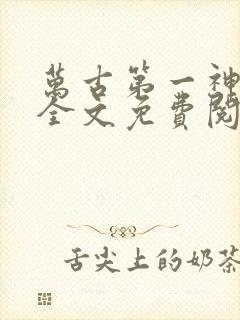 萬古第一神
全文免費閱
舌尖上的奶茶